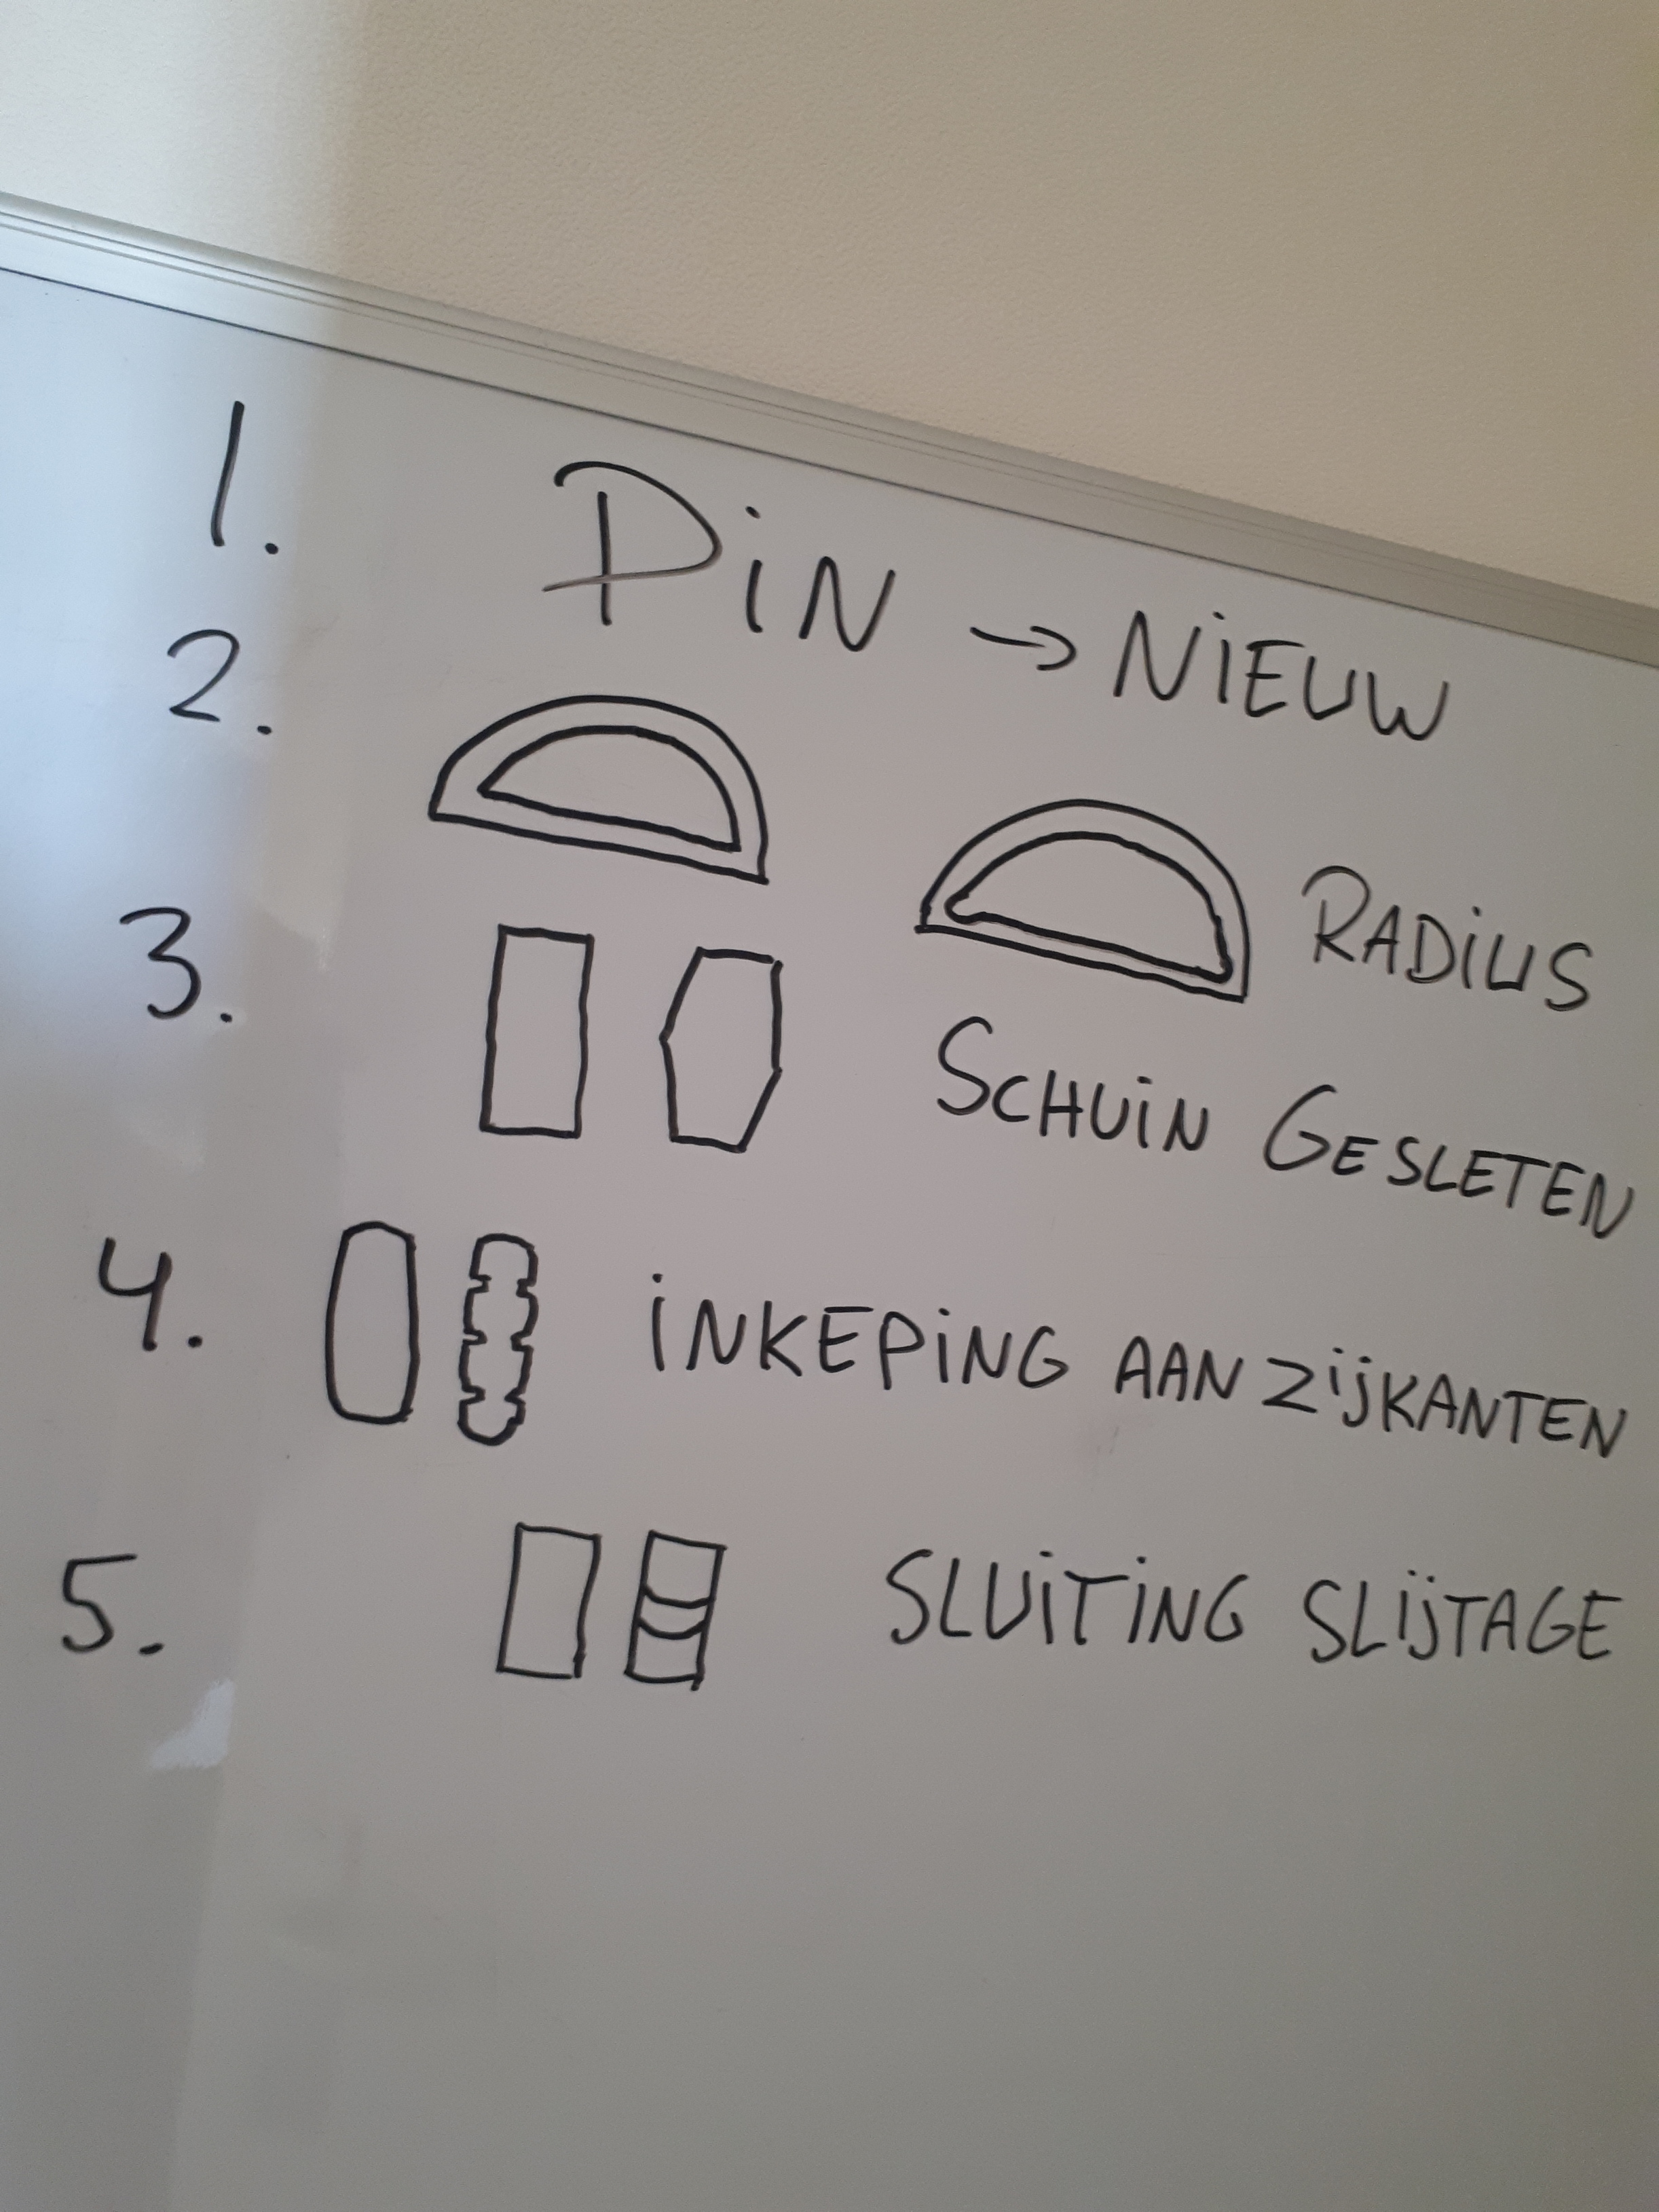 1. PiN → NiEUW
2. RADiUS
3. SCHUiN GESLETEN
4. iNKEPiNG AAN ZijKANTEN
5. SLUiTiNG SLijTAGE